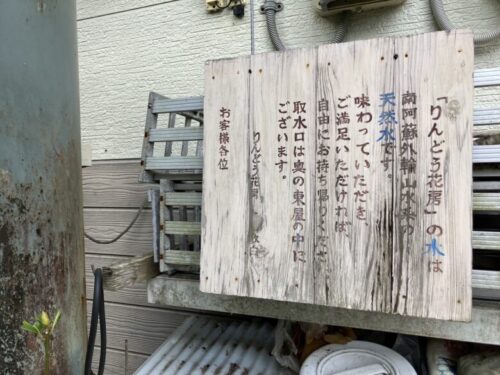 「りんどう花房」の水は
南阿蘇外輪山水系の
天然水です。
味わっていただき、
ご満足いただければ、
自由にお持ち帰りください
取水口は奥の東屋の中に
ございます。
りんどう花房
お客様各位